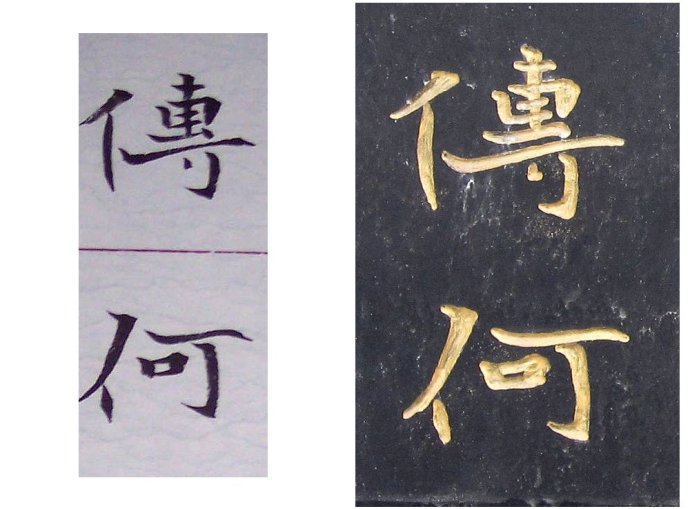 傳
何
傳
何